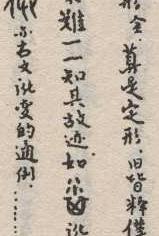 形全.算是定形.旧皆释僅
難一一知其故迹.如
亦古文讹变的通例.……